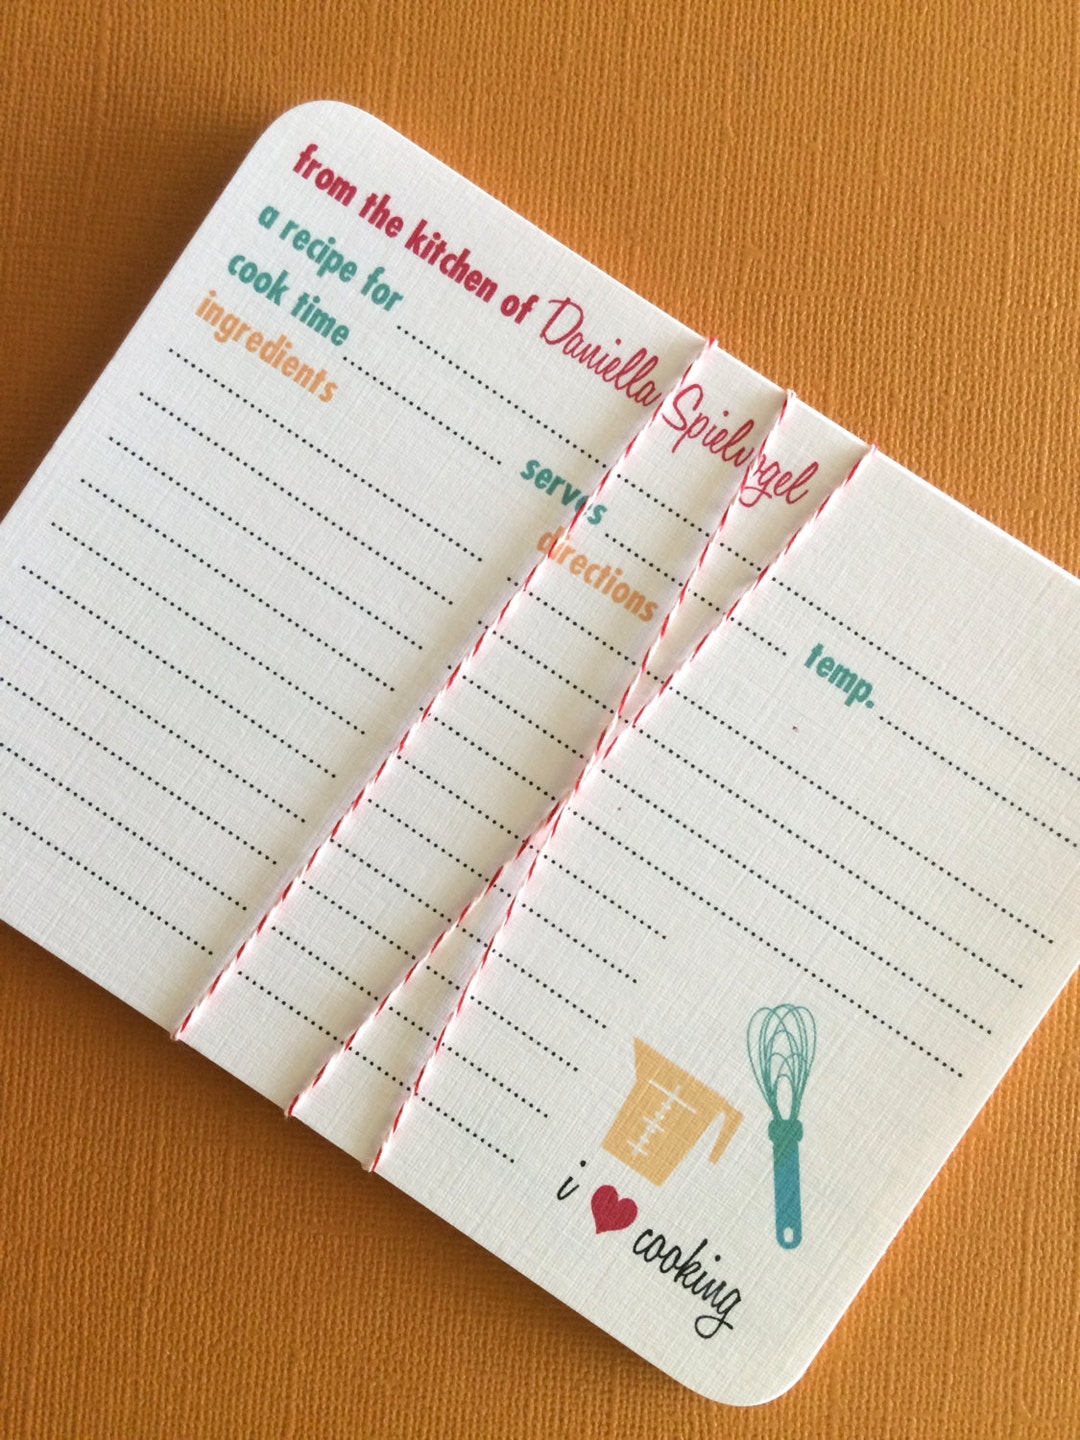 from the kitchen of Daniella Spielvogel
a recipe for
cook time serves temp.
ingredients directions
i ♥ cooking